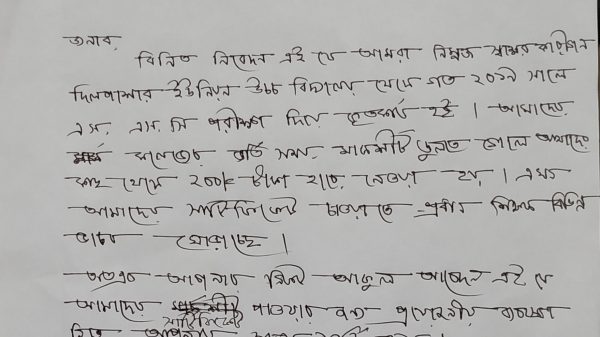 জনাব,
বিনিত নিবেদন এই যে আমরা নিম্নের স্বাক্ষরকারীগন
দিলপাশার ইউনিয়ন উচ্চ বিদ্যালয় থেকে গত ২০১৯ সালে
এস. এস. সি পরীক্ষা দিয়ে কৃতকার্য হই । আমাদের
কলেজে ভর্তি সময় মার্কশীট তুলতে গেলে আমাদের
কাছ থেকে ২০০/৫ টাকা হারে নেওয়া হয় । এখন
আমাদের সার্টিফিকেট চাওয়াতে প্রধান শিক্ষক বিভিন্ন
ভাবে ঘোরাচ্ছে ।
অতএব আপনার নিকট আকুল আবেদন এই যে
আমাদের পাওয়ার জন্য প্রয়োজনীয় ব্যবস্থা
সার্টিফিকেট
নিতে